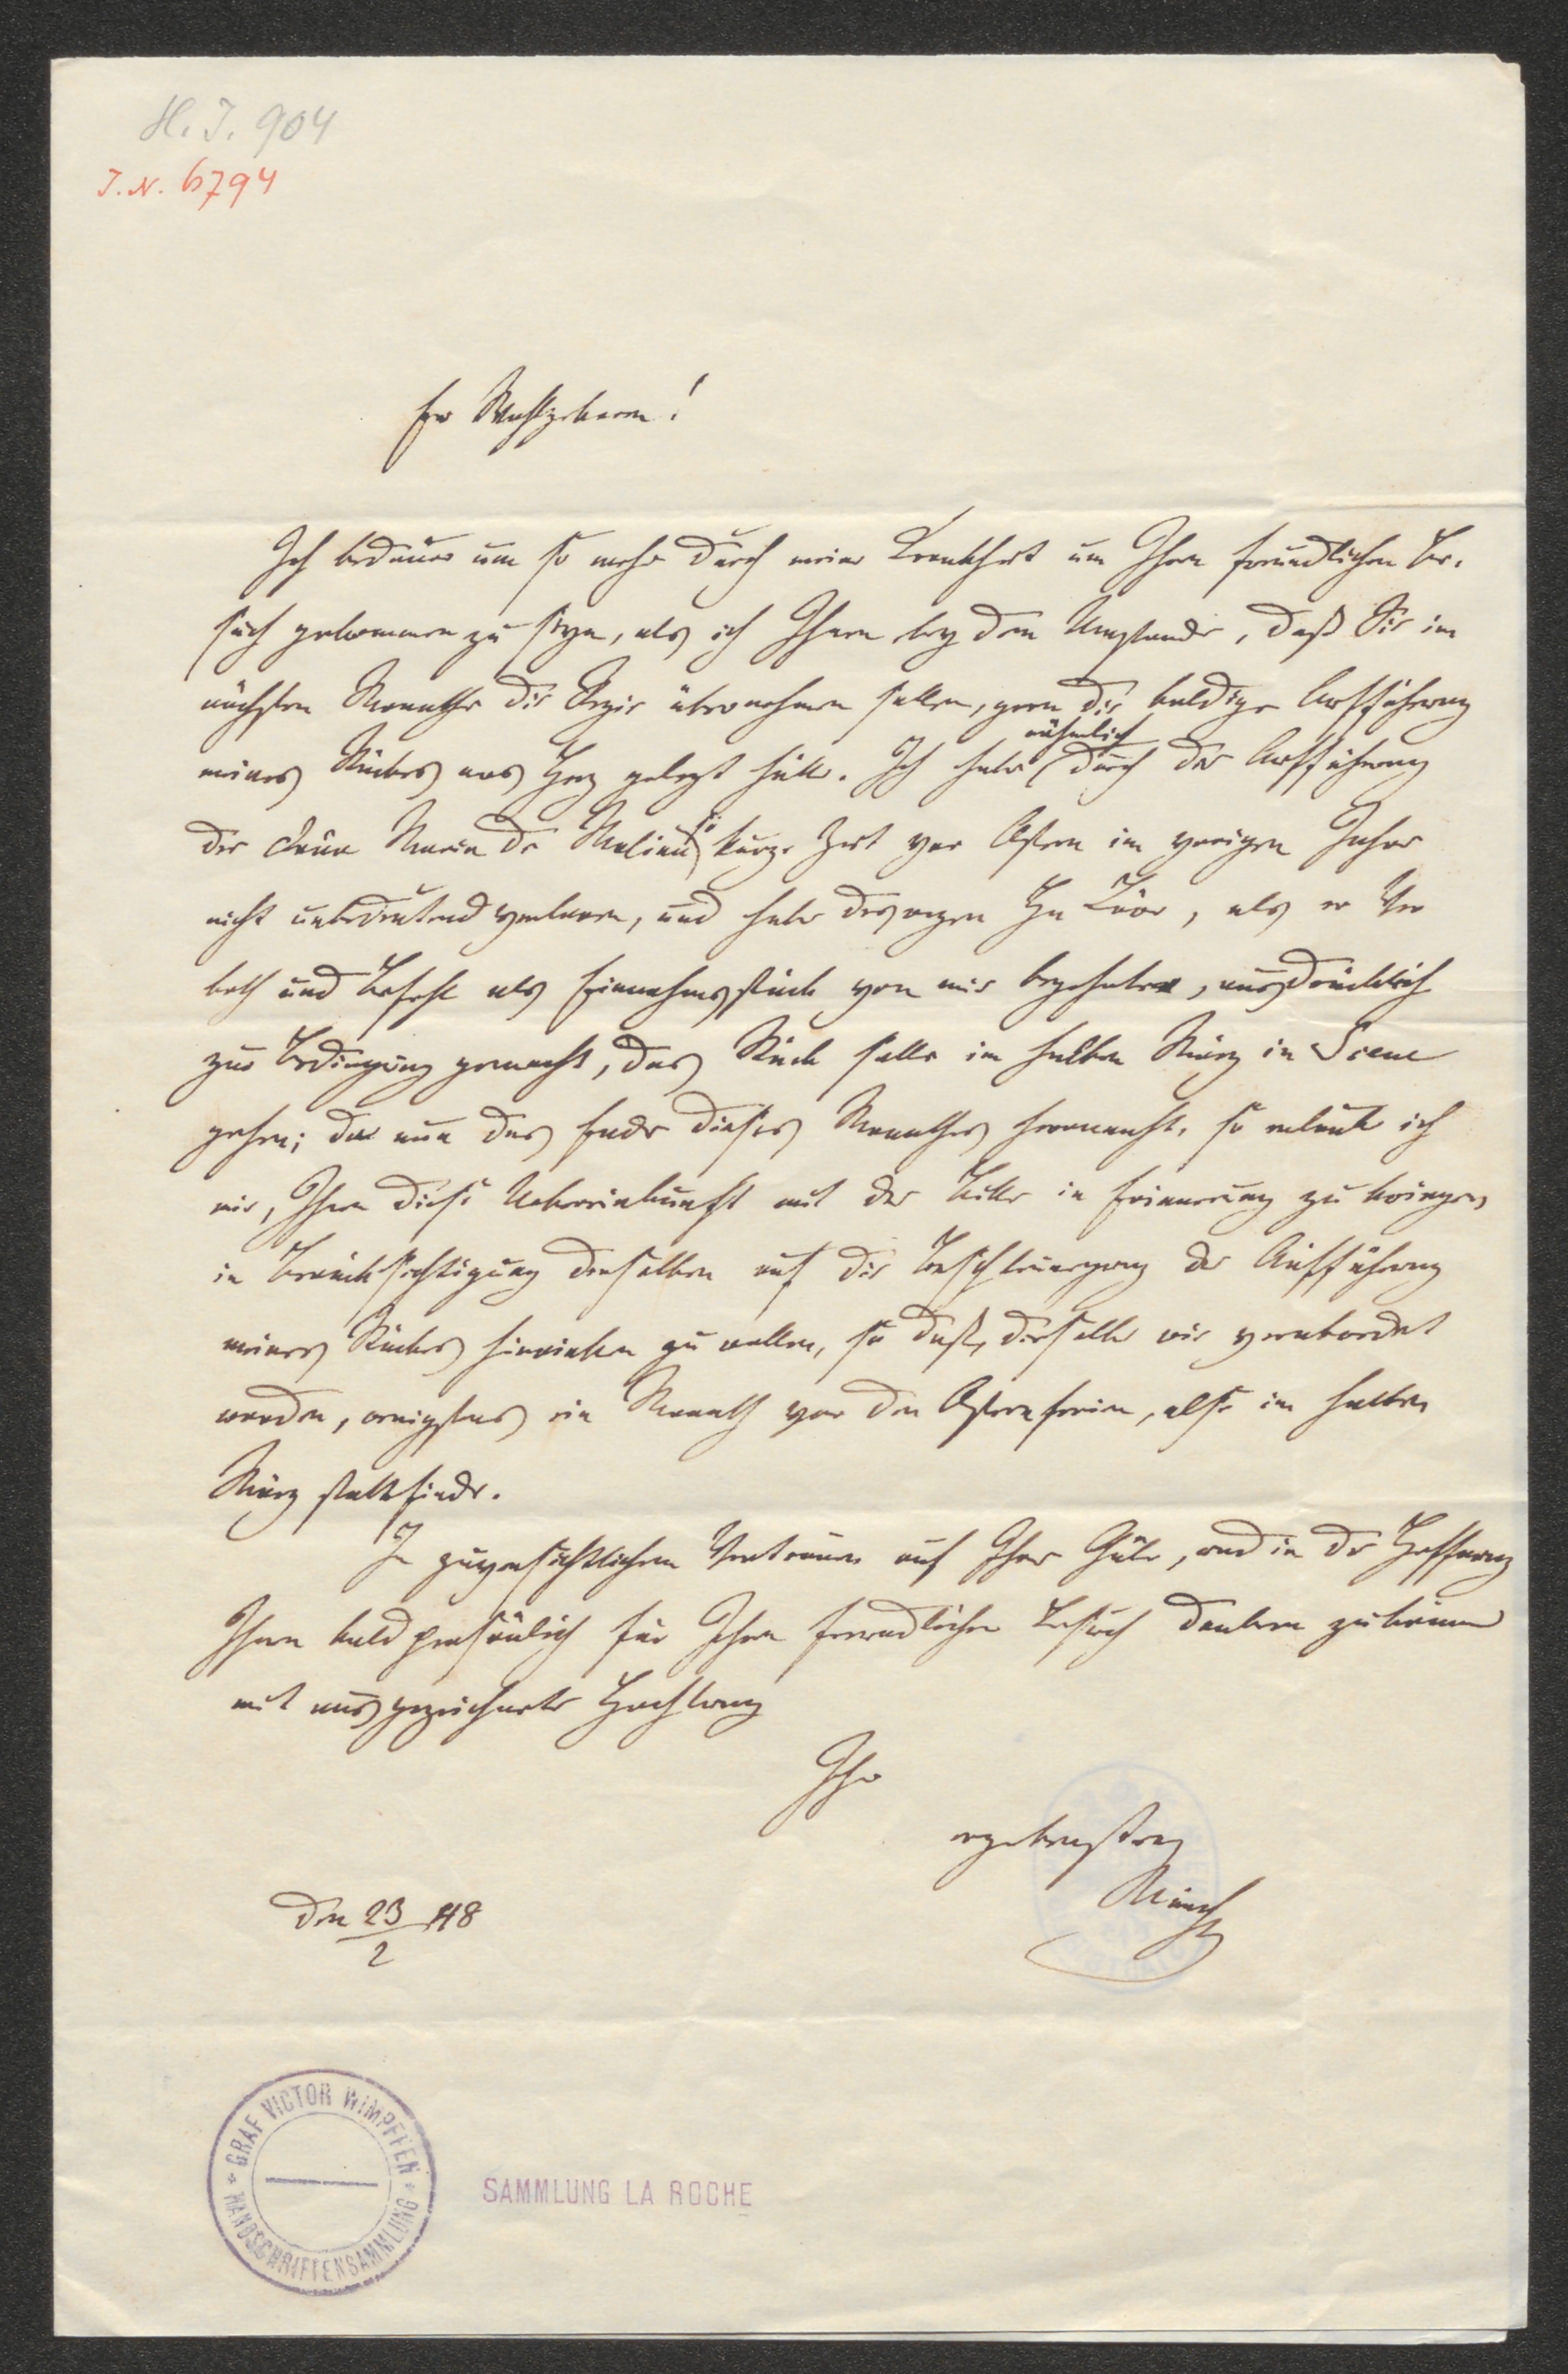 H. I. 904
I. N. 6794
Ew Wohlgeboren!
Ich bedaure um so mehr durch meine Krankheit um Ihren freundlichen Be-
such gekommen zu seyn, als ich Ihnen bey dem Umstande, daß Sie im
nächsten Monathe die Regie übernehmen sollen, gern die baldige Aufführung
meines Stückes ans Herz gelegt hätte. Ich habe nähmlich durch die Aufführung
der Maria de Molina so kurze Zeit vor Ostern im vorigen Jahre
nicht unbedeutend verloren, und habe deswegen Hn Löwe, als er Ver
both und Befehl als Einnahmsstück von mir begehrte, ausdrücklich
zur Bedingung gemacht, das Stück solle im halben März in Scene
gehen; da nun das Ende dieses Monathes herannaht, so erlaube ich
mir, Ihnen diese Uebereinkunft mit der Bitte in Erinnerung zu bringen,
in Berücksichtigung derselben auf die Beschleunigung der Aufführung
meines Stückes hinwirken zu wollen, so daß dieselbe wie verabredet
worden, wenigstens ein Monath vor den Osterferien, also im halben
März stattfinde.
In zuversichtlichem Vertrauen auf Ihre Güte, und in der Hoffnung
Ihnen bald persönlich für Ihren freundlichen Besuch danken zu können
mit ausgezeichneter Hochtung
Ihr
ergebenster
Münch
Den 23/2 48
GRAF VICTOR WIMPFFEN
HANDSCHRIFTENSAMMLUNG
SAMMLUNG LA ROCHE